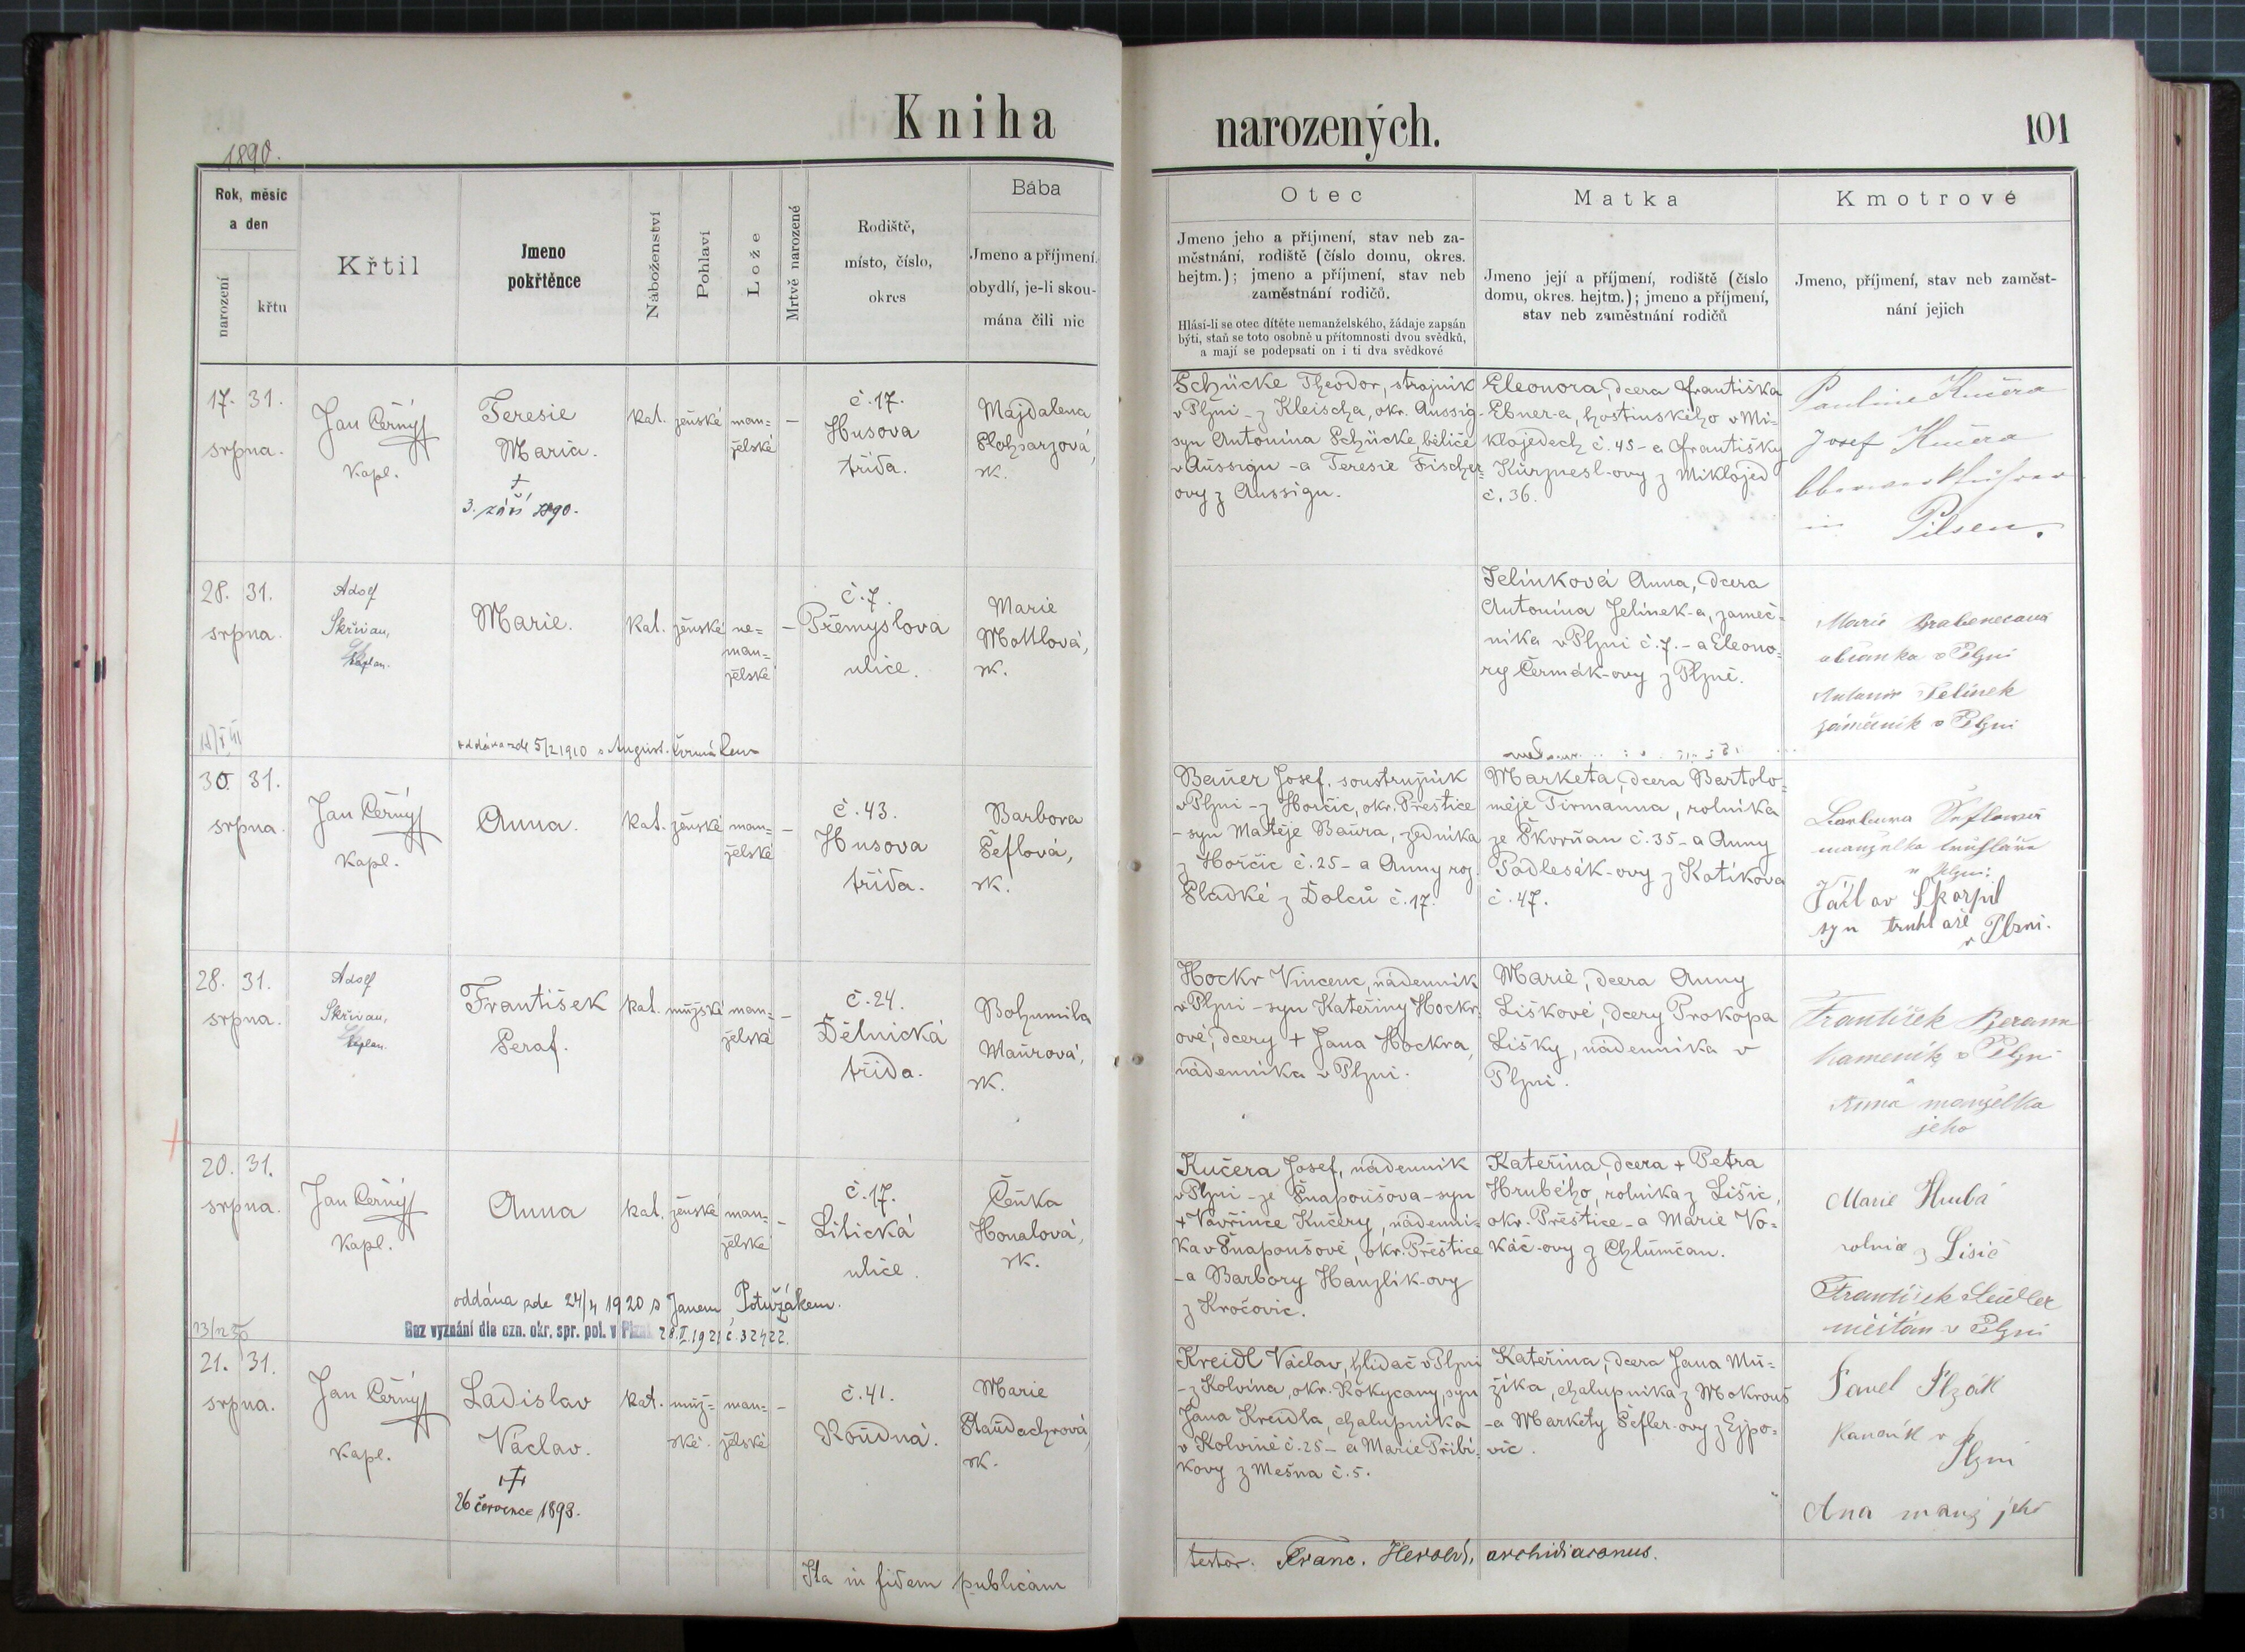 Kniha
narozených.
101
1890.
Rok, měsíc
a den
narození
křtu
Křtil
Jmeno
pokřtěnce
Náboženství
Pohlaví
Lože
Mrtvě narozené
Rodiště,
místo, číslo,
okres
Bába
Jmeno a příjmení,
obydlí, je-li skou-
mána čili nic
Otec
Jmeno jeho a příjmení, stav neb za-
městnání, rodiště (číslo domu, okres.
hejtm.); jmeno a příjmení, stav neb
zaměstnání rodičů.
Hlásí-li se otec dítěte nemanželského, žádaje zapsán
býti, staň se toto osobně u přítomnosti dvou svědků,
a mají se podepsati on i ti dva svědkové
Matka
Jmeno její a příjmení, rodiště (číslo
domu, okres. hejtm.); jmeno a příjmení,
stav neb zaměstnání rodičů
Kmotrové
Jmeno, příjmení, stav neb zaměst-
nání jejich
17. 31.
srpna.
Jan Černý
Kapl.
Teresie
Maria.
†
3. září 1890.
kat.
ženské
man=
želské
–
č. 17.
Husova
třída.
Majdalena
zk.
Schücke Theodor, strojník
v Plzni – z Kleischa, okr. Aussig-
syn Antonína Schücke, běliče
v Aussigu – a Teresie Fischer=
ovy z Aussigu.
Eleonora, dcera Františka
Ebner-a, hostinského v Mi=
klajedech č. 45 – a Františky
Kürznesl-ovy z Miklajed
č. 36.
Pauline Kučera
Josef Kučera
in Pilsen.
28. 31.
srpna.
Adolf
Skřivan,
kaplan.
Marie.
kat.
ženské
ne=
man=
želské
–
č. 7.
Přemyslova
ulice.
Marie
Mottlová,
zk.
Jelínková Anna, dcera
Antonína Jelínek-a, zameč=
níka v Plzni č. 7. – a Eleono=
ry Čermák-ovy z Plzně.
Marie Brabenecová
občanka v Plzni
Antonín Jelínek
zámečník v Plzni
oddána zde 5/2 1910 s August. Čermákem
30. 31.
srpna.
Jan Černý
Kapl.
Anna.
kat.
ženské
man=
želské
–
č. 43.
Husova
třída.
Barbora
Šeflová,
zk.
Bauer Josef, soustružník
v Plzni – z Horčic, okr. Přeštice
– syn Matěje Baura, zedníka
z Horčic č. 25 – a Anny roz.
Sladké z Dolců č. 17.
Marketa, dcera Bartolo=
měje Tirmanna, rolníka
ze Škvrňan č. 35 – a Anny
Podlesák-ovy z Kotíkova
č. 47.
Barbara
manželka truhláře
v Plzni:
Václav Škorpil
syn truhlaře
v Plzni.
28. 31.
srpna.
Adolf
Skřivan,
kaplan.
František
Seraf.
kat.
mužské
man=
želské
–
č. 24.
Dělnická
třída.
Bohumila
Maurová,
zk.
Hockr Vincenc, nádenník
v Plzni – syn Kateřiny Hockr=
ové, dcery † Jana Hockra,
nádenníka v Plzni.
Marie, dcera Anny
Liškové, dcery Prokopa
Lišky, nádenníka v
Plzni.
František
kameník v Plzni
Anna manželka
jeho
20. 31.
srpna.
Jan Černý
Kapl.
Anna
kat.
ženské
man=
želské
–
č. 17.
Litická
ulice.
Čeňka
Honalová,
zk.
Kučera Josef, nádenník
v Plzni – ze Snapoušova – syn
† Vavřince Kučery, nádenní=
ka v Snapoušově, okr. Přeštice
– a Barbory Hanzlík-ovy
z Kročovic.
Kateřina, dcera † Petra
Hrubého, rolníka z Lišic,
okr. Přeštice – a Marie Vo=
káč-ovy z Chlumčan.
Marie Hrubá
rolnice z Lisic
František Seidler
měšťan v Plzni
oddána zde 24/4 1920 s Janem Potužákem.
Bez vyznání dle ozn. okr. spr. pol. v Plzni 28. I. 1921 č. 32422.
21. 31.
srpna.
Jan Černý
Kapl.
Ladislav
Václav.
†
26 července 1893.
kat.
muž=
ské.
man=
želské
–
č. 41.
Roudná.
Marie
Staudachrová
zk.
Kreidl Václav, hlídač v Plzni
– z Kolvína, okr. Rokycany, syn
Jana Kreidla, chalupníka
v Kolvíně č. 25 – a Marie Přibí=
kovy z Mešna č. 5.
Kateřina, dcera Jana Mu=
žíka, chalupníka z Mokrouš
– a Markety Šefler-ovy z Ejpo=
vic.
Pavel
v Plzni
Ana manž jeho
Ita in fidem publicam
testor. Franc. Herold, archidiaconus.